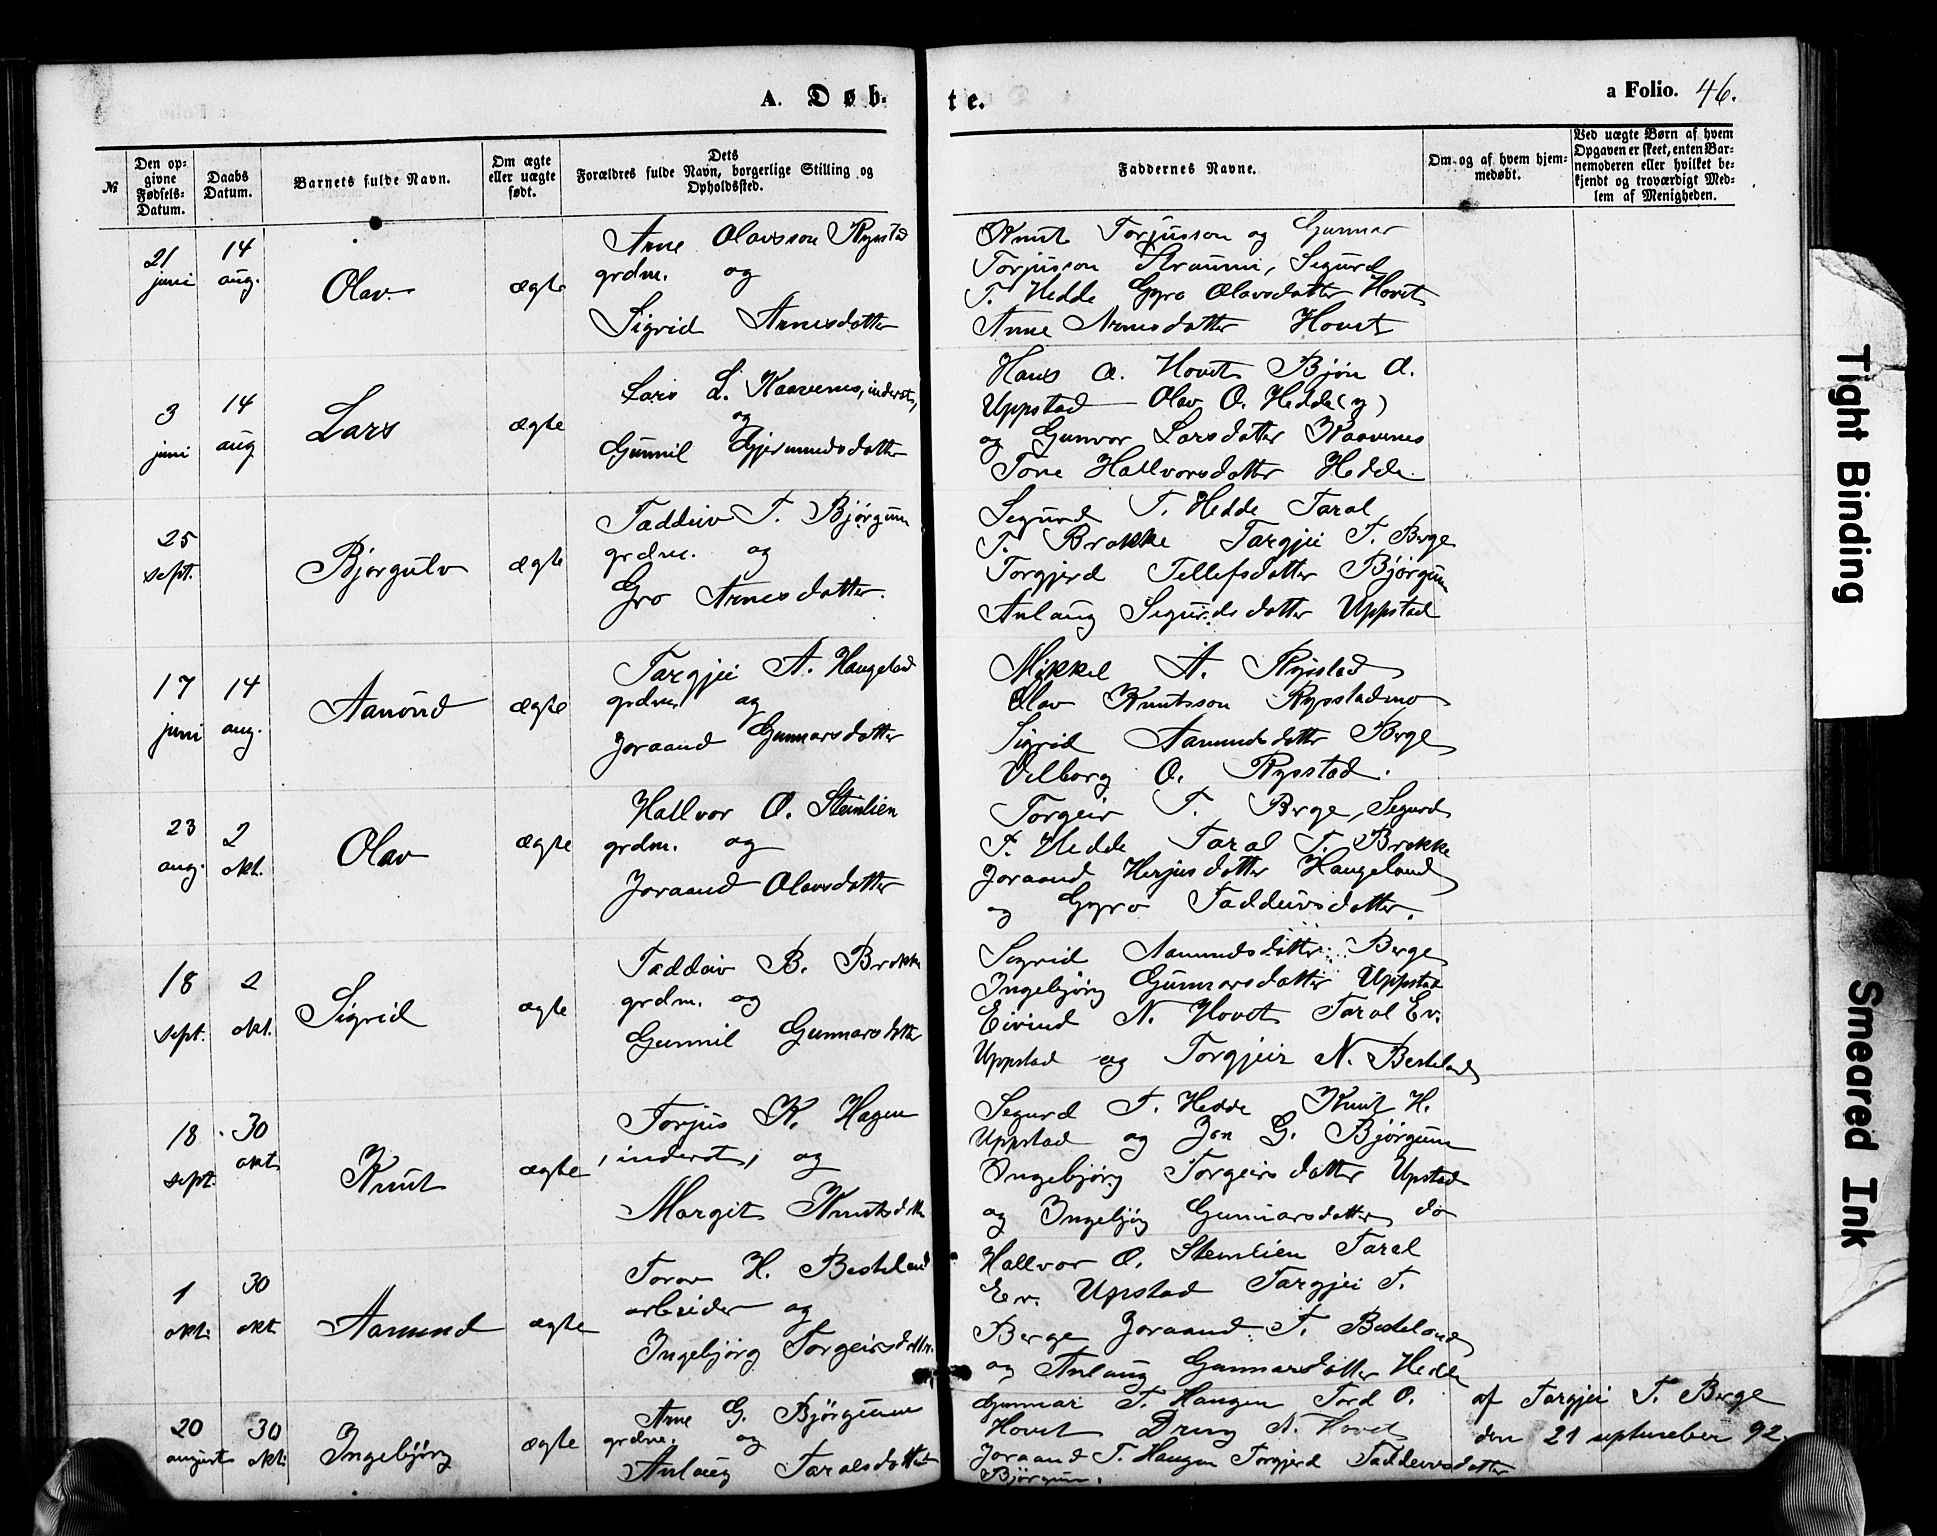 A. Døb-
te.
a Folio. 46.
№
Den op-
givne
Fødsels-
Datum.
Daabs
Datum.
Barnets fulde Navn.
Om ægte
eller uægte
født.
Dets
Forældres fulde Navn, borgerlige Stilling og
Opholdssted.
Faddernes Navne.
Om og af hvem hjem-
medøbt.
Ved uægte Børn af hvem
Opgaven er skeet, enten Bar-
nemoderen eller hvilket be-
kjendt og troværdigt Med-
lem af Menigheden.
21
juni
14
aug.
Olav
ægte
Arne Olavsson Rysstad
grdm. og
Sigrid Arnesdatter
Knut Torjusson og Gunnar
Torjusson Straumi, Segurd
T. Hedde Gyro Olavsdatter Hovet
Anne Arnesdatter Hovet
3
juni
14
aug
Lars
ægte
Lars L. Kaavenes, inderst,
og
Gunnil Gjermundsdatter
Hans O. Hovet Bjøn O.
Uppstad Olav O. Hedde (y)
og Gunvor Larsdatter Kaavenes
Tone Hallvorsdatter Hedde
25
sept.
Bjørgulv
ægte
Taddeiv T. Bjørgum
grdm. og
Gro Arnesdatter.
Segurd T. Hedde Taral
T. Brokke Targjei T. Berge
Torgjerd Tellefsdatter Bjørgum
Anlaug Segurdsdatter Uppstad
17
juni
14
aug.
Aamund
ægte
Targjei A. Haugeland
grdm. og
Joraand Gunnarsdatter
Mikkel A. Rysstad
Olav Knutsson Rysstadmo
Sigrid Aamundsdatter Berge
Vilborg O. Rysstad.
23
aug.
2
okt.
Olav
ægte
Hallvor O. Steinlien
grdm. og
Joraand Olavsdatter
Torgeir T. Berge, Segurd
T. Hedde Taral T. Brokke
Joraand Herjusdatter Haugeland
og Gyro Taddeivsdatter.
18
sept.
2
okt.
Sigrid
ægte
Taddeiv B. Brokke
grdm. og
Gunnil Gunnarsdatter
Sigrid Aamundsdatter Berge
Ingebjørg Gunnarsdatter Uppstad
Eivind N. Hovet Taral Ev.
Uppstad og Torgjeir N. Besteland
18
sept.
30
okt
Knut
ægte
Torjus K. Hagen
, inderst, og
Margit Knutsdtr
Segurd T. Hedde Knut H.
Uppstad og Jon G. Bjørgum
Ingebjørg Torgeirsdatter Upstad
og Ingebjørg Gunnarsdatter do
1
okt.
30
okt
Aamund
ægte
Torov H. Besteland
arbeider og
Ingebjørg Torgeirsdattr.
Hallvor O. Steinlien Taral
Ev. Upstad Targjei T.
Berge Joraand T. Besteland
og Anlaug Gunnarsdatter Hedde
20
august
30
okt.
Ingebjørg
ægte
Arne G. Bjørgum
grdm. og
Anlaug Taralsdatter
Gunnar T. Haugen Tord O.
Hovet Dreng N. Hovet
Joraand T. Haugen Torgjerd Taddeivsdatter
Bjørgum.
af Targjei T. Berge
den 21 september 92.
Tight Binding
Smeared Ink